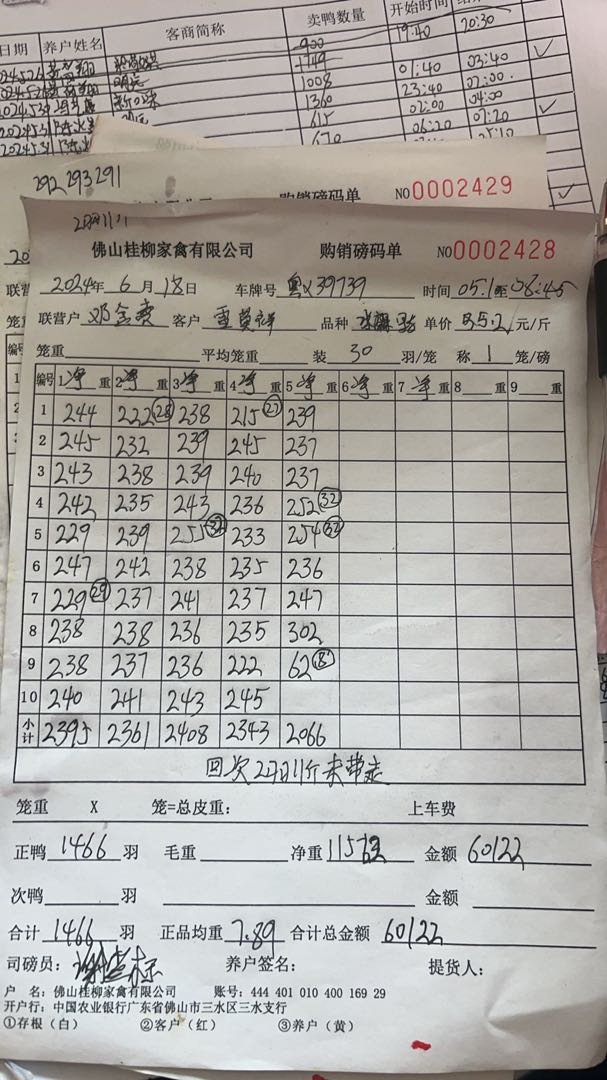 日期 养户姓名 客商简称 卖鸭数量 开始时间
900 19:40 20:30
1749
1008 01:40 03:40
1360 23:40 02:00
615 02:00 04:00
670 06:20 07:20
292 293 291
购销磅码单 NO 0002429
佛山桂柳家禽有限公司 购销磅码单 NO 0002428
联营 2024年 6月 18日 车牌号 粤X39739 时间 05:1 至 08:45
联营户 邓金 客户 雷 品种 单价 5.2 元/斤
笼重 平均笼重 装 30 羽/笼 称 1 笼/磅
编号 1净重 2净重 3净重 4净重 5净重 6净重 7净重 8 重 9 重
1 244 222(28) 238 215(27) 239
2 245 232 239 245 237
3 243 238 239 240 237
4 242 235 243 236 252(32)
5 229 239 255(32) 233 254(32)
6 247 242 238 235 236
7 229(29) 237 241 237 247
8 238 238 236 235 302
9 238 237 236 222 62(8)
10 240 241 243 245
小计 2395 2361 2408 2343 2066
回次2只11斤未带走
笼重 X 笼=总皮重: 上车费
正鸭 1466 羽 毛重 净重 11562 金额 60122
次鸭 羽 金额
合计 1466 羽 正品均重 7.89 合计总金额 60122
司磅员: 养户签名: 提货人:
户 名: 佛山桂柳家禽有限公司 账号: 444 401 010 400 169 29
开户行: 中国农业银行广东省佛山市三水区三水支行
①存根(白) ②客户(红) ③养户(黄)